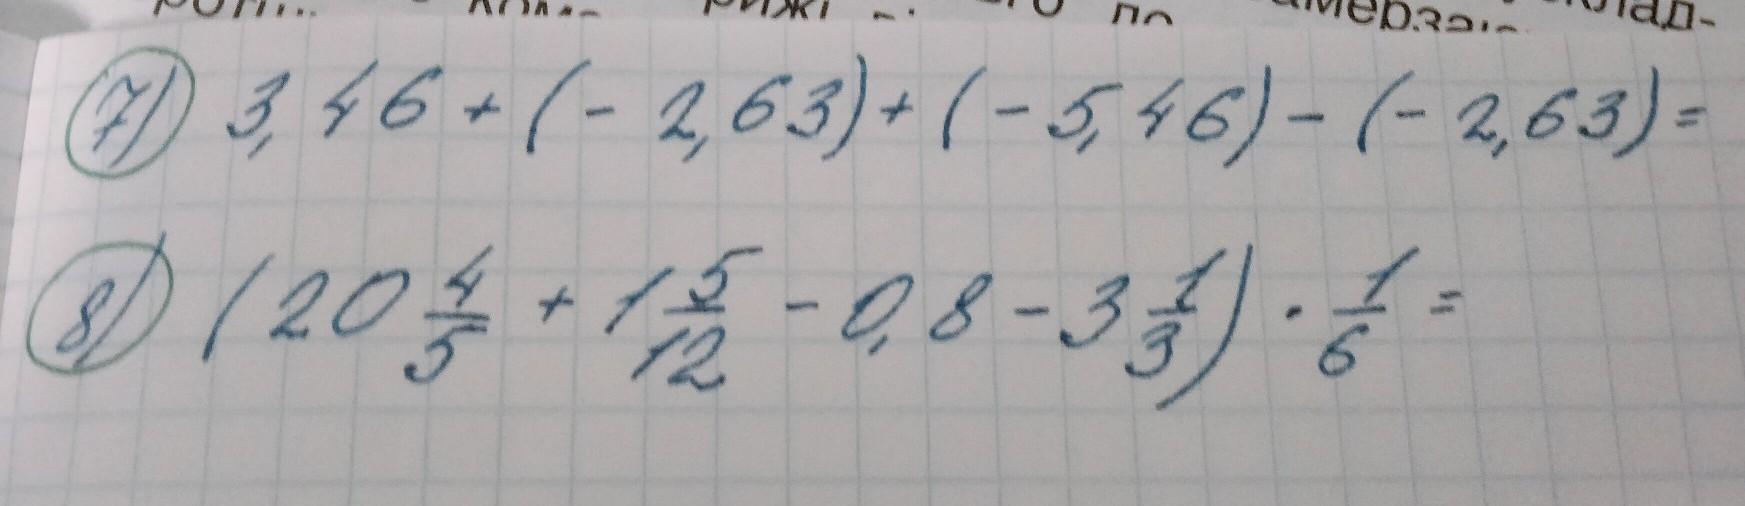 7) 3,46 + (- 2,63) + (- 5,46) - (- 2,63) =
8) (20 4/5 + 1 5/12 - 0,8 - 3 1/3) · 1/6 =